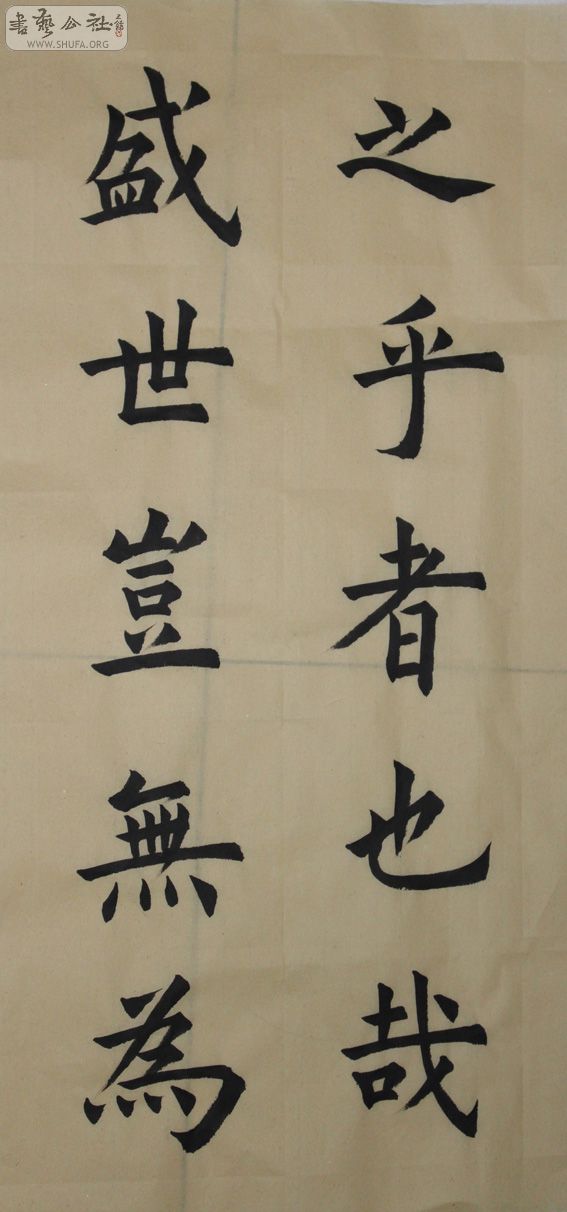 之乎者也哉
盛世豈無為
書藝公社
WWW.SHUFA.ORG